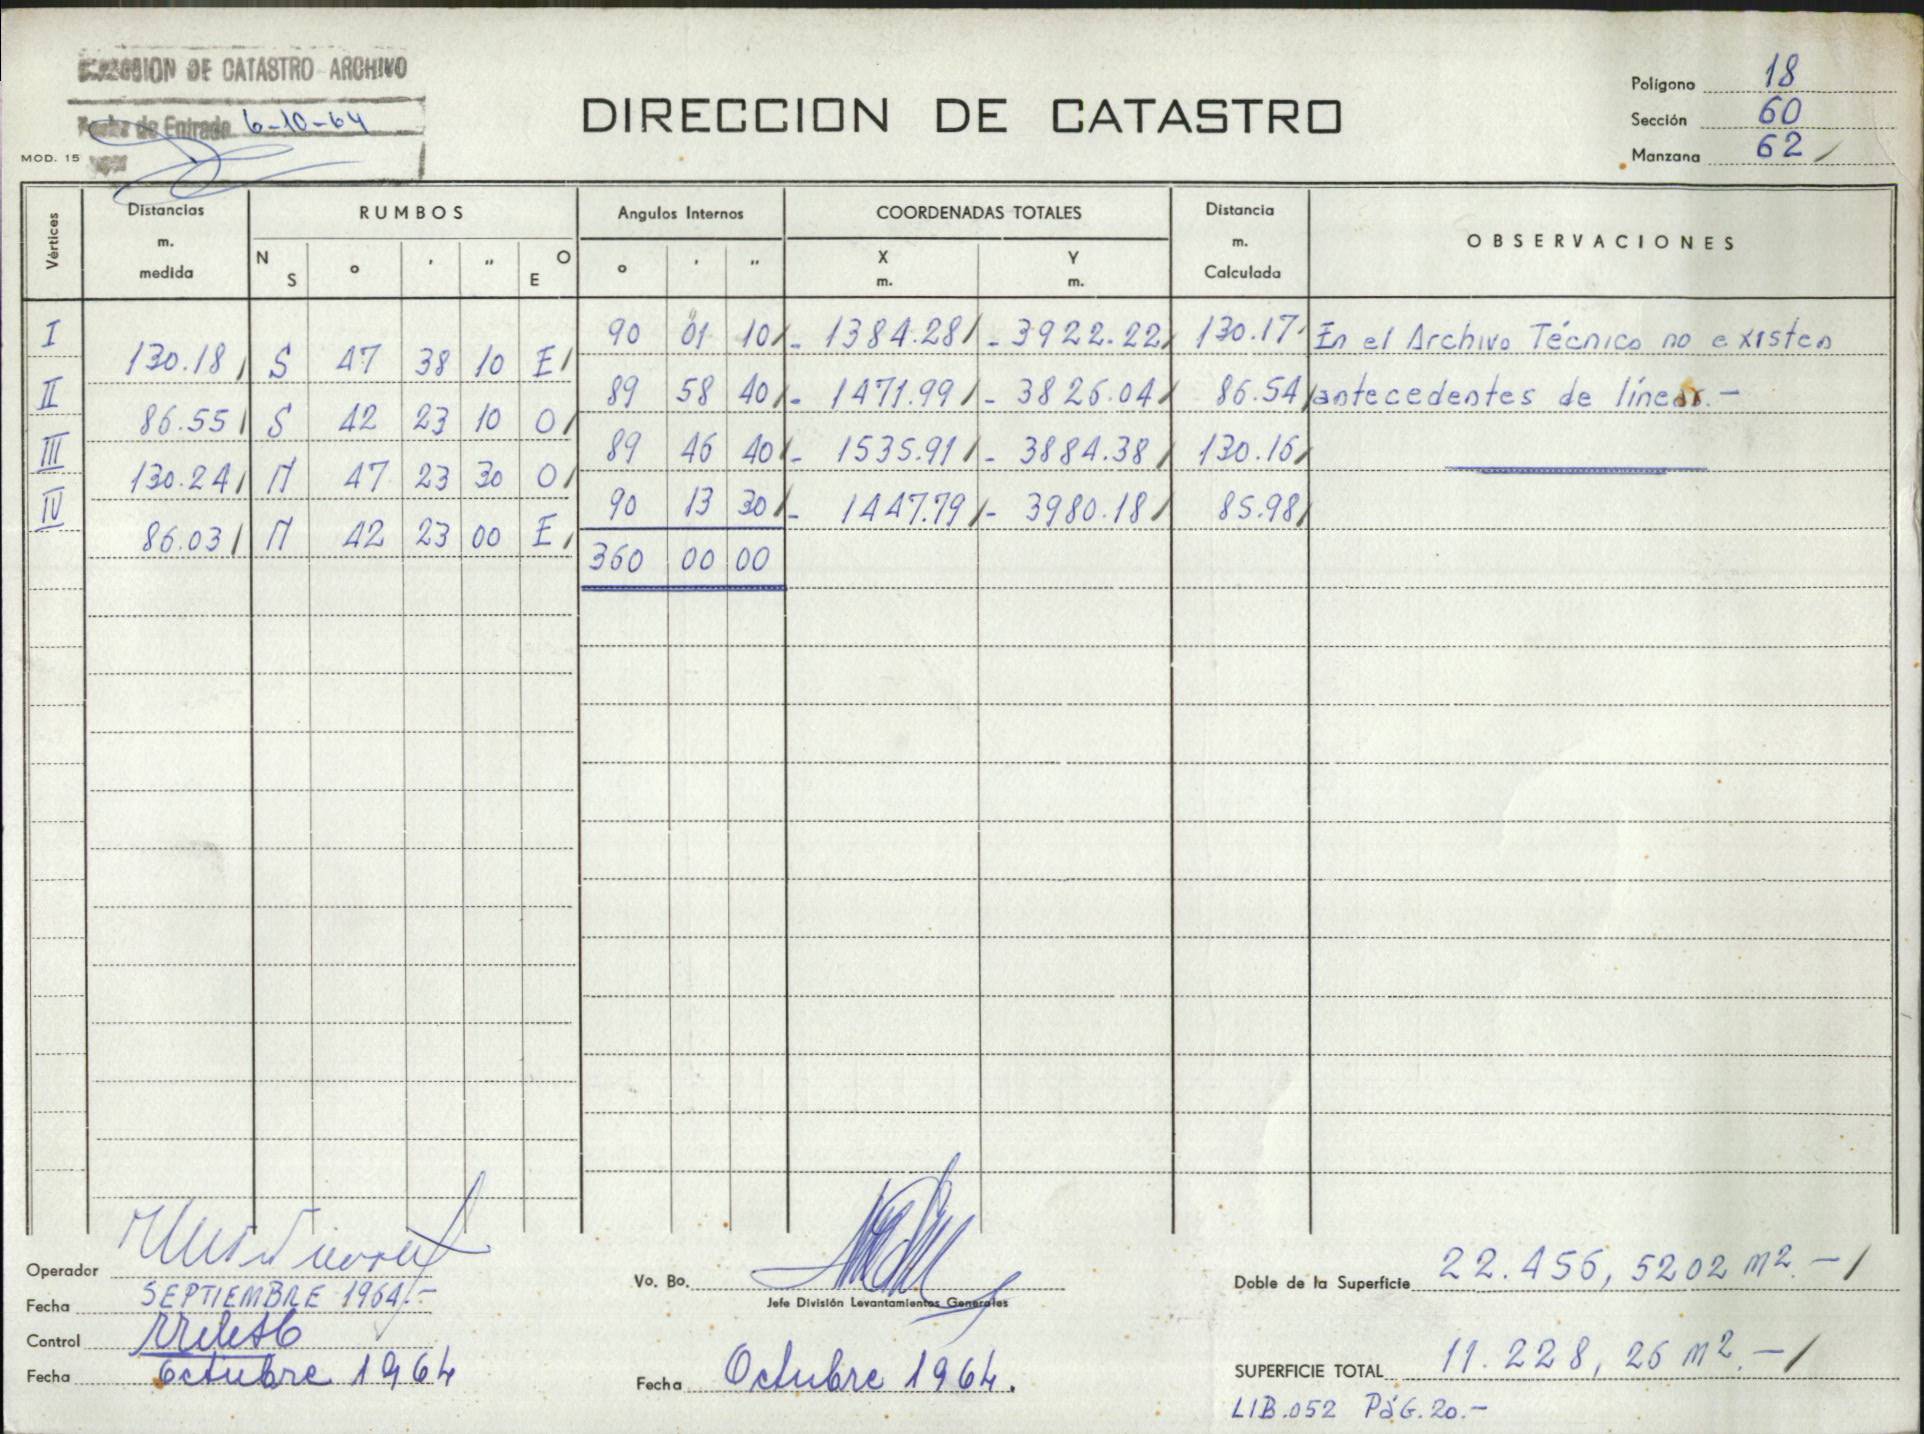 DIRECCION DE CATASTRO ARCHIVO
Fecha de Entrada 6-10-64
MOD. 15
DIRECCION DE CATASTRO
Polígono 18
Sección 60
Manzana 62
Vértices
Distancias m. medida
RUMBOS
N S ° ' " O E
Angulos Internos
° ' "
COORDENADAS TOTALES
X m. Y m.
Distancia m. Calculada
OBSERVACIONES
I 90 01 10 - 1384.28 - 3922.22 130.17 En el Archivo Técnico no existen
130.18 S 47 38 10 E
II 89 58 40 - 1471.99 - 3826.04 86.54 antecedentes de línea.-
86.55 S 42 23 10 O
III 89 46 40 - 1535.91 - 3884.38 130.16
130.24 N 47 23 30 O
IV 90 13 30 - 1447.79 - 3980.18 85.98
86.03 N 42 23 00 E
360 00 00
Operador
Fecha SEPTIEMBRE 1964.-
Control
Fecha Octubre 1964
Vo. Bo.
Jefe División Levantamientos Generales
Fecha Octubre 1964.
Doble de la Superficie 22.456,5202 m2.-
SUPERFICIE TOTAL 11.228,26 m2.-
LIB.052 PÁG.20.-